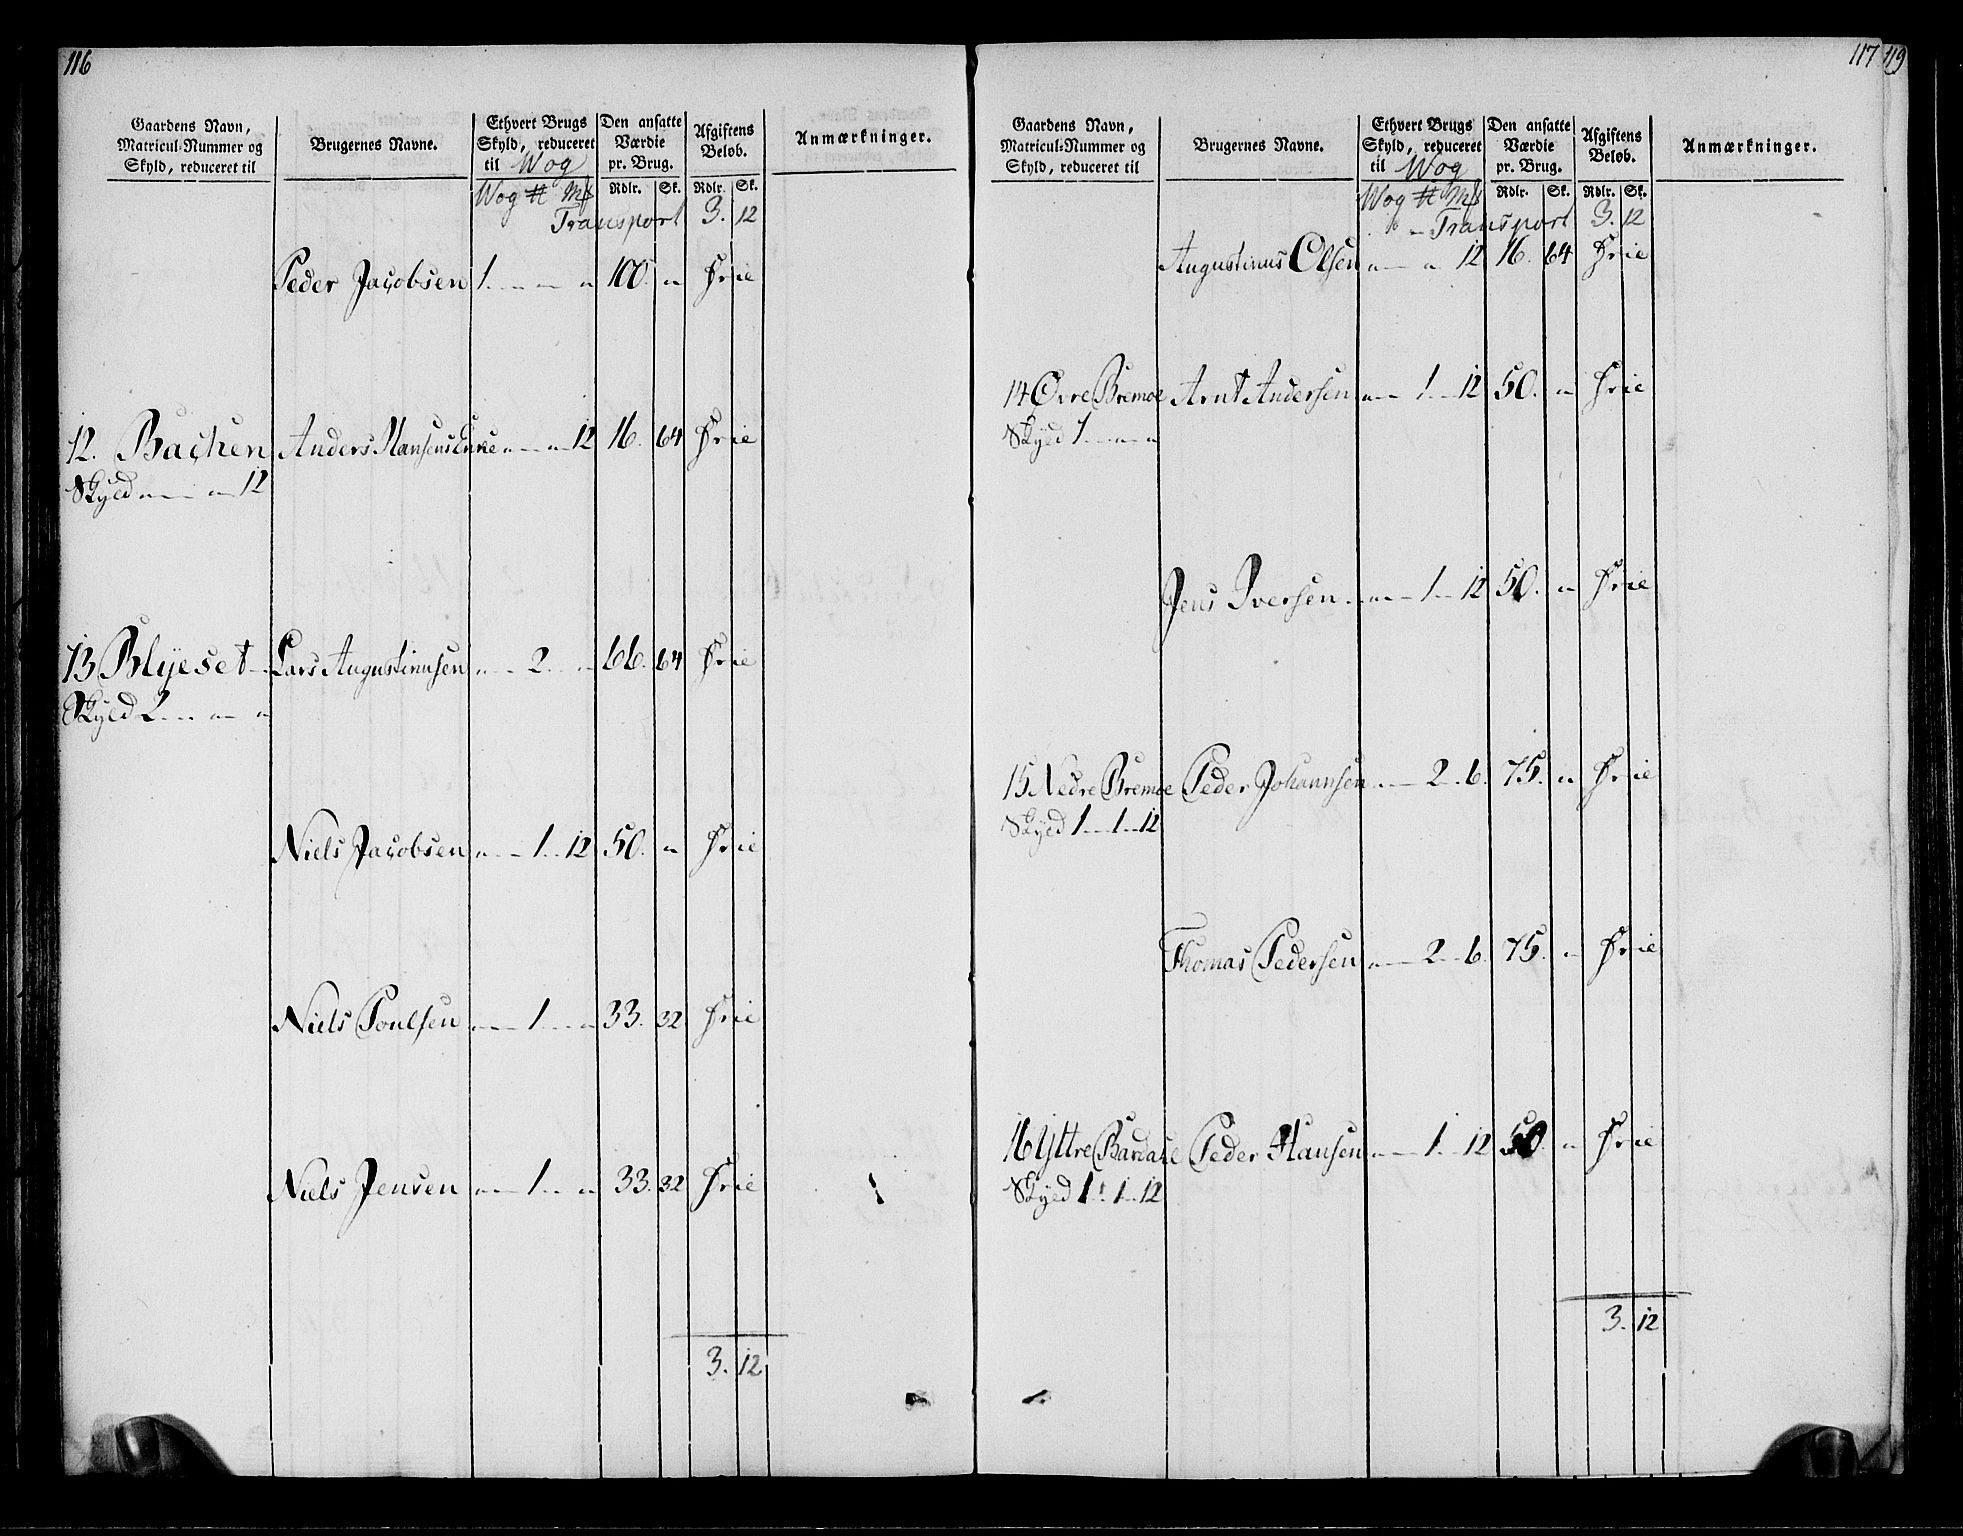 116
Gaardens Navn, Matricul-Nummer og Skyld, reduceret til
Brugernes Navne.
Ethvert Brugs Skyld, reduceret til Wog
Den ansatte Værdie pr. Brug.
Afgiftens Beløb.
Anmærkninger.
Wog # Mk Rdlr. Sk. Rdlr. Sk.
Transport 3. 12
Peder Jacobsen 1 - - - 100. - Frie
12. Bachen Anders Hansens Enke - - 12 16. 64 Frie
Skyld - - 12
13 Blyeset - Lars Augustinusen - 2. - 66. 64 Frie
Skyld 2 - -
Niels Jacobsen - 1 - 12 50. - Frie
Niels Poulsen - 1 - 33. 32 Frie
Niels Jensen - 1 - 33. 32 Frie
3. 12
117 119
Gaardens Navn, Matricul-Nummer og Skyld, reduceret til
Brugernes Navne.
Ethvert Brugs Skyld, reduceret til Wog
Den ansatte Værdie pr. Brug.
Afgiftens Beløb.
Anmærkninger.
Wog # Mk Rdlr. Sk. Rdlr. Sk.
Transport 3. 12
Augustinus Olsen - - 12 16. 64 Frie
14 Øvre Bremoe Arnt Andersen - 1 - 12 50. - Frie
Skyld 1 - -
Jens Iversen - 1 - 12 50. - Frie
15 Nedre Bremoe Peder Johannsen - 2 - 6. 75. - Frie
Skyld 1 - 1 - 12
Thomas Pedersen - 2 - 6. 75. - Frie
16 Yttre Peder Hansen - 1 - 12 50. - Frie
Skyld 1. 1 - 12
3. 12